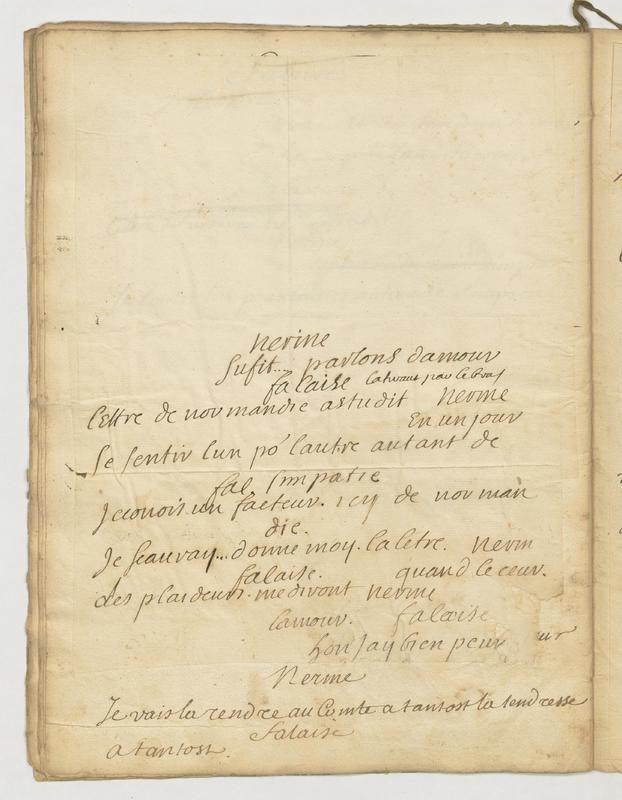 nerine
sufit... parlons damour
falaise latirant par le bras
lettre de normandie astudit nerine
En un jour
se sentir lun po' lautre autant de
fal simpatie
Jeconois un facteur. icy de norman
die.
Je scauray... donne moy. la letre. nerin
falaise. quand le ceur.
des plaideurs. me diront nerine
lamour. falaise
hon jay bien peur
Nerine
Je vais la rendre au Comte a tantost la tendresse
falaise
a tantost.